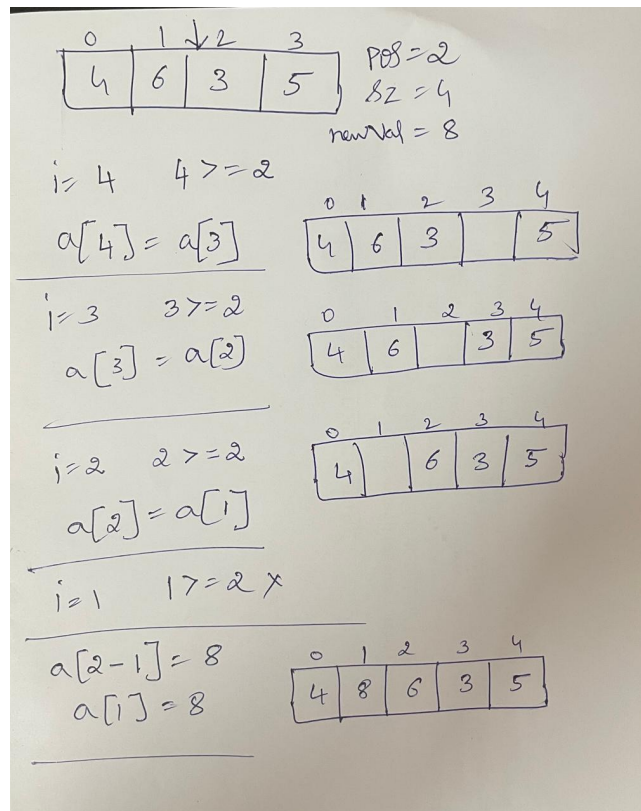 0 1 2 3
4 6 3 5
pos=2
sz=4
newVal=8
i=4 4>=2
a[4]=a[3]
0 1 2 3 4
4 6 3 5
i=3 3>=2
a[3]=a[2]
0 1 2 3 4
4 6 3 5
i=2 2>=2
a[2]=a[1]
0 1 2 3 4
4 6 3 5
i=1 1>=2 x
a[2-1]=8
a[1]=8
0 1 2 3 4
4 8 6 3 5